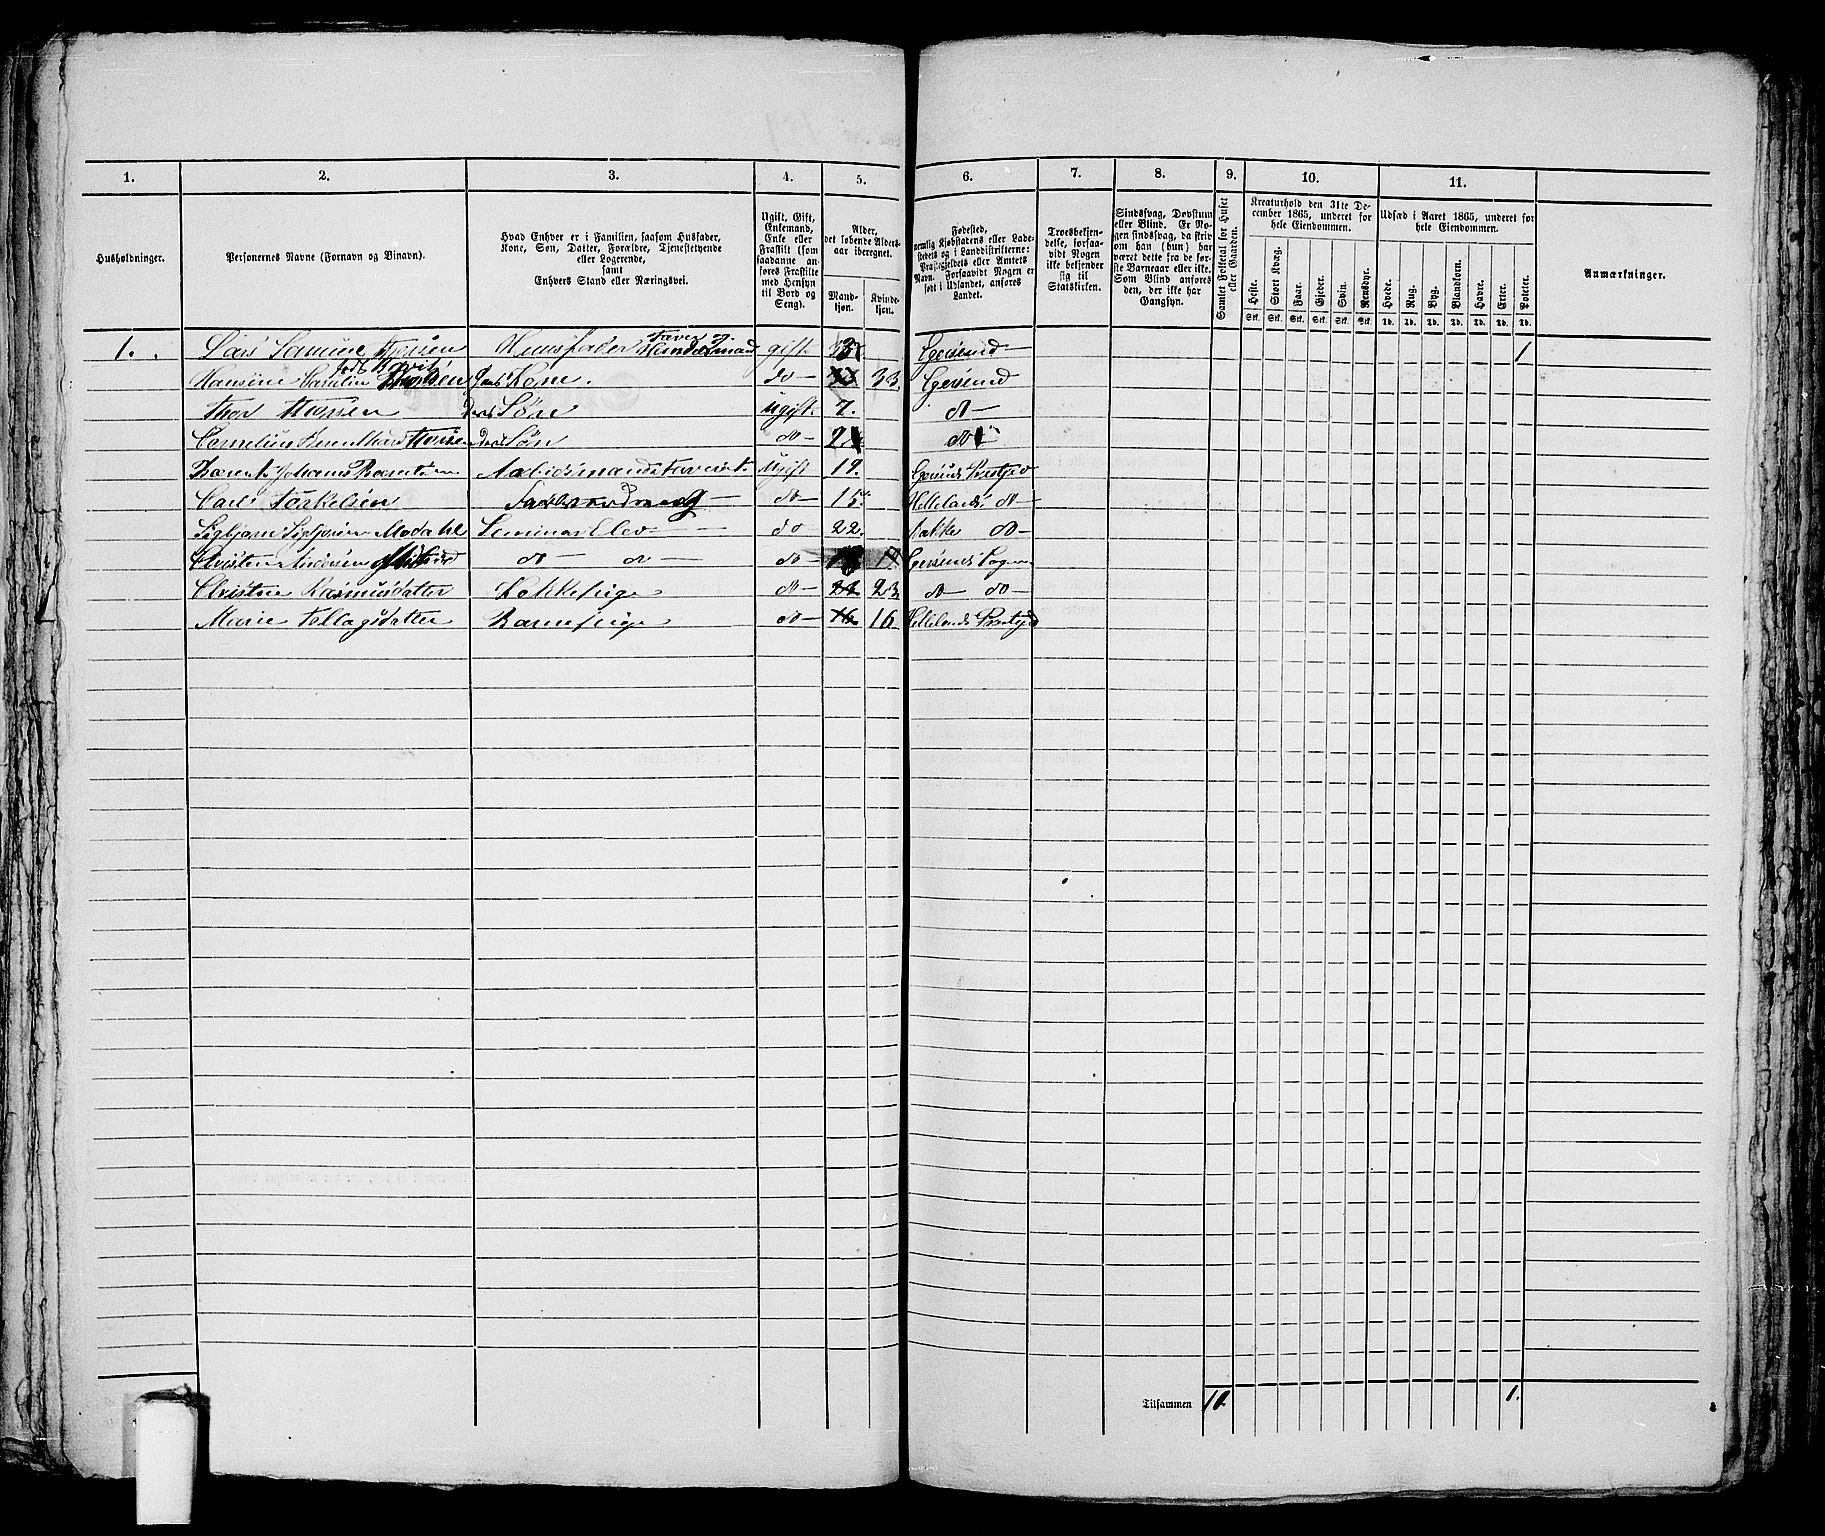 1. 2. 3. 4. 5. 6. 7. 8. 9. 10. 11.
Husholdninger.
Personernes Navne (Fornavn og Binavn).
Hvad Enhver er i Familien, saasom Husfader,
Kone, Søn, Datter, Forældre, Tjenestetyende
eller Logerende,
samt
Enhvers Stand eller Næringsvei.
Ugift, Gift,
Enkemand,
Enke eller
Fraskilt (som
saadanne an-
føres Fraskilte
med Hensyn
til Bord og
Seng).
Alder,
det løbende Alders-
aar iberegnet.
Mand-
kjøn.
Kvinde-
kjøn.
Fødested,
nemlig Kjøbstadens eller Lade-
stedets og i Landdistrikterne:
Præstegjeldets eller Amtets
Navn. Forsaavidt Nogen er
født i Udlandet, anføres
Landet.
Troesbekjen-
delse, forsaa-
vidt Nogen
ikke bekjender
sig til
Statskirken.
Sindssvag, Døvstum
eller Blind. Er No-
gen sindssvag, da skriv
om han (hun) har
været dette fra de før-
ste Barneaar eller ikke.
Som Blind anføres
den, der ikke har
Gangsyn.
Samlet Folketal for Huset
eller Gaarden.
Kreaturhold den 31te De-
cember 1865, underet for
hele Eiendommen.
Heste. Stort Kvæg. Faar. Gjeder. Svin. Rensdyr.
Stk. Stk. Stk. Stk. Stk. Stk.
Udsæd i Aaret 1865, underet for
hele Eiendommen.
Hvede. Rug. Byg. Blandkorn. Havre. Erter. Poteter.
Td. Td. Td. Td. Td. Td. Td.
Anmærkninger.
1. Lars Samuel Husfader gift. Egersund 1
Hansine Kone. do 33 Egersund
Thor Søn ugift. 7. do
Søn do do
Ugift 19.
Carl Torkelsen do 15. Hellelands do
Seminar Elev do 22. Bakke do
Christen do do do Egersunds Sogn
Christine Rasmusdatter Kokkepige do 23 do do
Marie Tollagsdatter Barnepige do 16 16 Hellelands Præstgjd
Tilsammen 10 1.